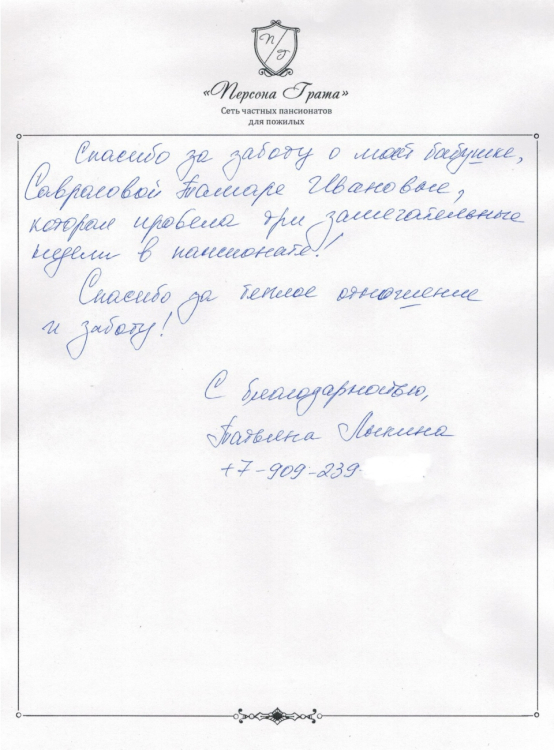 П Г
«Персона Грата»
Сеть частных пансионатов
для пожилых
Спасибо за заботу о моей бабушке,
Саврасовой Тамаре Ивановне,
которая провела три замечательные
недели в пансионате!
Спасибо за теплое отношение
и заботу!
С благодарностью,
Татьяна Лыкина
+7-909-239-